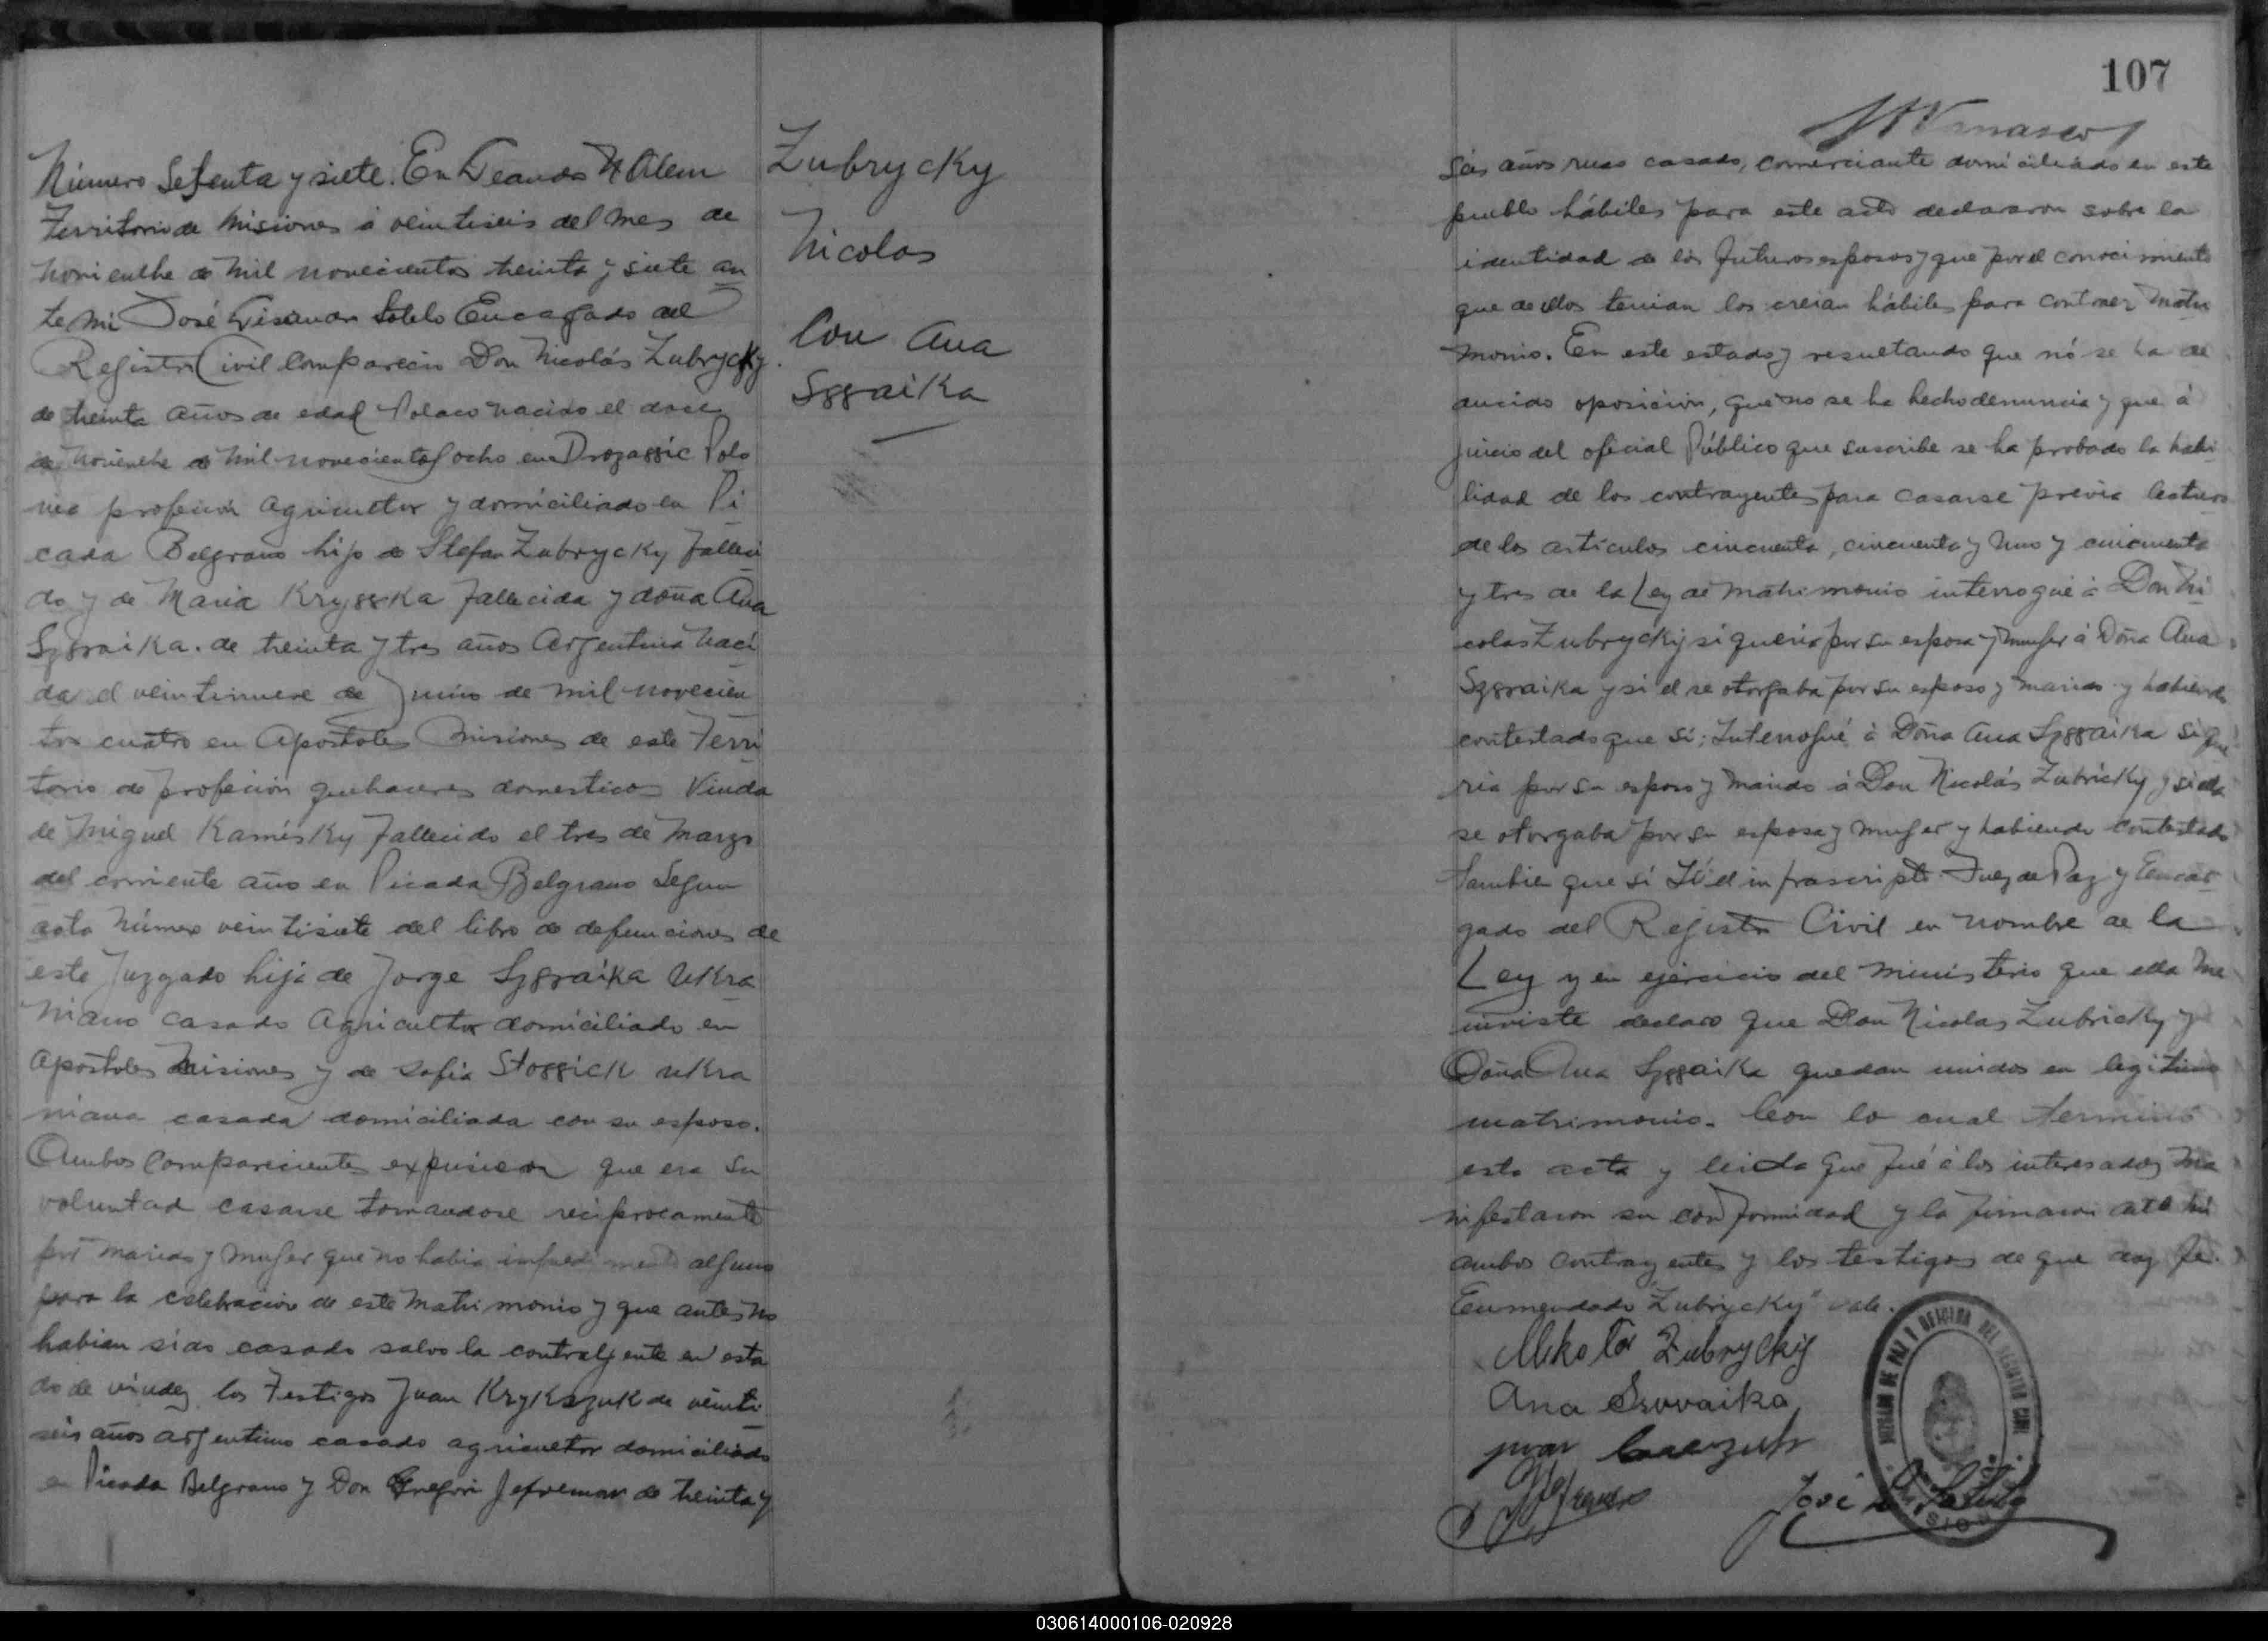 Número Setenta y siete. En Leandro N Alem
Territorio de Misiones á veintiseis del mes de
Noviembre de mil novecientos treinta y siete an
te mi José Lisandro Sotelo Encargado del
Registro Civil Compareció Don Nicolás Zubrycky
de treinta años de edad Polaco nacido el doce
de Noviembre de mil novecientos ocho en Drozassic Polo
nia profesión agricultor y domiciliado en Pi
cada Belgrano hijo de Stefan Zubrycky falleci
do y de Maria Krysska fallecida y doña Ana
Szsraika. de treinta y tres años Argentina naci
da el veintinueve de Junio de mil novecien
tos cuatro en Apostoles Misiones de este Terri
torio de profeción quehaceres domesticos Viuda
de Miguel Kamisky fallecido el tres de Marzo
del corriente año en Picada Belgrano Segun
acta Número veintisiete del libro de defunciones de
este Juzgado hija de Jorge Szsraika Ukra
niano casado Agricultor domiciliado en
Apostoles Misiones y de Sofia Stossick ukra
niana casada domiciliada con su esposo.
Ambos Comparecientes expusieron que era su
voluntad casarse tomandose reciprocamente
por marido y mujer que no habia impedimento alguno
para la celebracion de este Matrimonio y que antes no
habian sido casado salvo la contrayente en esta
do de viudez los Testigos Juan Krykszuk de veinti
seis años argentino casado agricultor domiciliado
en Picada Belgrano y Don Gregori Jefremow de treinta y
Zubrycky
Nicolas
Con Ana
Sssraika
107
seis años ruso casado, comerciante domiciliado en este
pueblo hábiles para este acto declararon sobre la
identidad de los futuros esposos y que por el conocimiento
que de ellos tenian los creian hábiles para contraer Matri
monio. En este estado y resultando que nó se ha de
ducido oposición, que no se ha hecho denuncia y que á
juicio del oficial Público que suscribe se ha probado la habi
lidad de los contrayentes para casarse previa lectura
de los articulos cincuenta, cincuenta y uno y cincuenta
y tres de la Ley de Matrimonio interrogué á Don Ni
colas Zubrycky si queria por su esposa y mujer á Doña Ana
Szsraika y si el se otorgaba por su esposo y marido y habiendo
contestado que Si; Interrogué á Doña Ana Szsraika si que
ria por su esposo y marido á Don Nicolás Zubricky y si ella
se otorgaba por su esposa y mujer y habiendo contestado
tambien que si Yó el infrascripto Juez de Paz y Encar
gado del Registro Civil en nombre de la
Ley y en ejercicio del ministerio que ella me
inviste declaro que Don Nicolas Zubricky y
Doña Ana Szsraika quedan unidos en legitimo
matrimonio. Con lo cual terminó
esta acta y leida que fué á los interesados ma
nifestaron su conformidad y la firmaron ante mi
ambos contrayentes y los testigos de que doy fe.
Enmendado "Zubrycky" vale.
Mikola Zubryckij
Ana Srovaika
juan
José L Sotelo
JUZGADO DE PAZ Y OFICINA DEL REGISTRO CIVIL
MISIONES
030614000106-020928